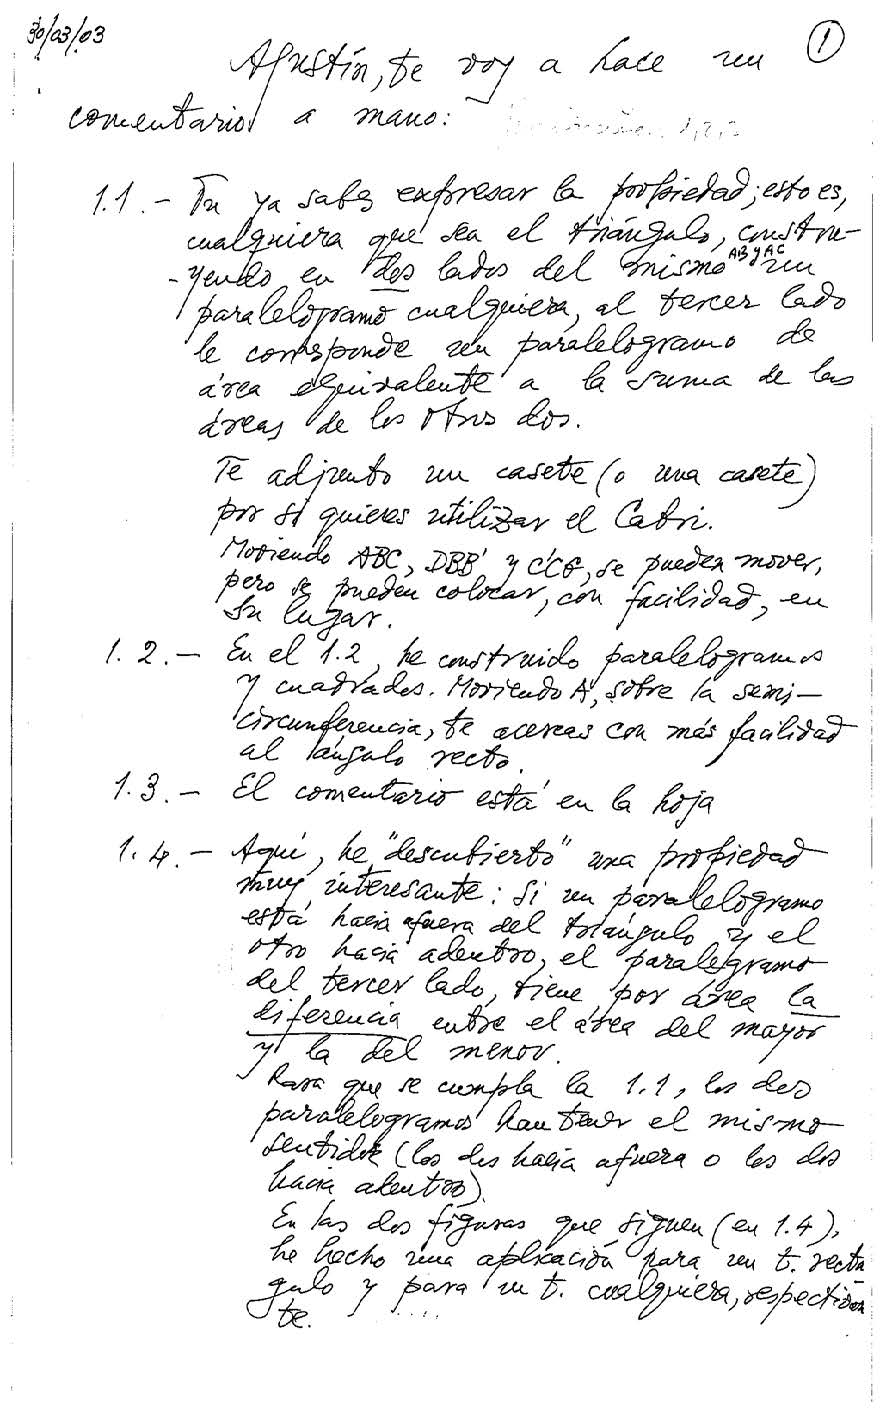 30/03/03
1
Agustín, te voy a hace un
comentario a mano:
1.1.- Tu ya sabes expresar la propiedad; esto es,
cualquiera que sea el triángulo, constru-
-yendo en dos lados del mismo AB y AC un
paralelogramo cualquiera, al tercer lado
le corresponde un paralelogramo de
área equivalente a la suma de las
áreas de los otros dos.
Te adjunto un casete (o una casete)
por si quieres utilizar el Cabri.
Moviendo ABC, DBB' y C'CG, se pueden mover,
pero se pueden colocar, con facilidad, en
su lugar.
1.2.- En el 1.2, he construido paralelogramos
y cuadrados. Moviendo A, sobre la semi-
circunferencia, te acercas con más facilidad
al ángulo recto.
1.3.- El comentario está en la hoja
1.4.- Aquí, he "descubierto" una propiedad
muy interesante: Si un paralelogramo
está hacia afuera del triángulo y el
otro hacia adentro, el paralegramo
del tercer lado, tiene por área la
diferencia entre el área del mayor
y la del menor.
Para que se cumpla la 1.1, los dos
paralelogramos han tener el mismo
sentido (los dos hacia afuera o los dos
hacia adentro).
En las dos figuras que siguen (en 1.4),
he hecho una aplicación para un t. rectán
gulo y para un t. cualquiera, respectivamen
te.